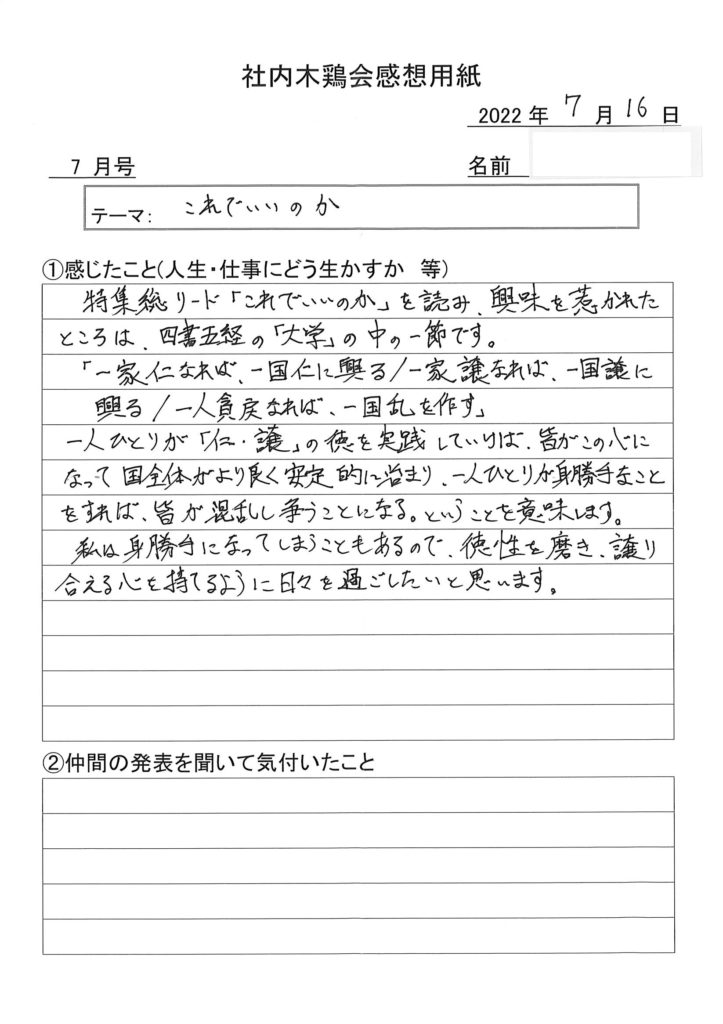 社内木鶏会感想用紙
2022年 7月 16日
7 月号 名前
テーマ: これでいいのか
①感じたこと(人生・仕事にどう生かすか 等)
特集総リード「これでいいのか」を読み、興味を惹かれた
ところは、四書五経の「大学」の中の一節です。
「一家仁なれば、一国仁に興る/一家譲なれば、一国譲に
興る/一人貪戻なれば、一国乱を作す」
一人ひとりが「仁・譲」の徳を実践していけば、皆がこの心に
なって国全体がより良く安定的に治まり、一人ひとりが身勝手なこと
をすれば、皆が混乱し争うことになる。ということを意味します。
私は身勝手になってしまうこともあるので、徳性を磨き、譲り
合える心を持てるように日々を過ごしたいと思います。
②仲間の発表を聞いて気付いたこと